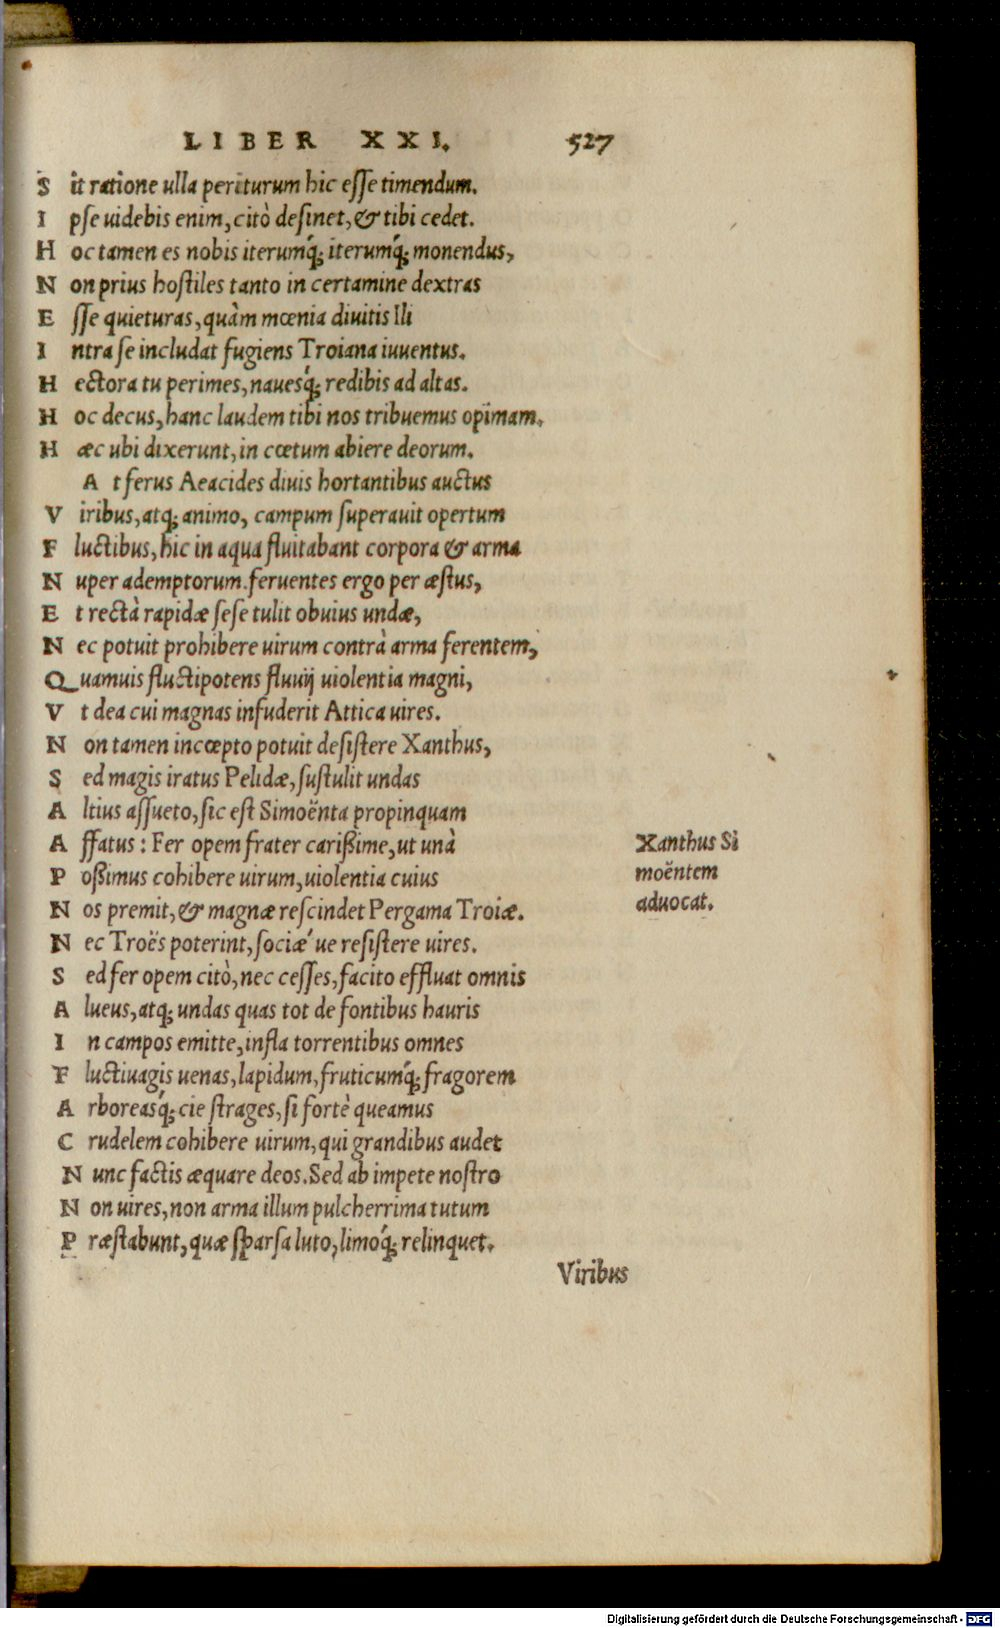 LIBER XXI. 527
S it ratione ulla periturum hic esse timendum.
I pse uidebis enim, citò desinet, & tibi cedet.
H oc tamen es nobis iterumq́; iterumq́; monendus,
N on prius hostiles tanto in certamine dextras
E sse quieturas, quàm mœnia diuitis Ili
I ntra se includat fugiens Troiana iuuentus.
H ectora tu perimes, nauesq́; redibis ad altas.
H oc decus, hanc laudem tibi nos tribuemus opimam.
H æc ubi dixerunt, in cœtum abiere deorum.
A t ferus Aeacides diuis hortantibus auctus
V iribus, atq; animo, campum superauit opertum
F luctibus, hic in aqua fluitabant corpora & arma
N uper ademptorum. feruentes ergo per æstus,
E t rectà rapidæ sese tulit obuius undæ,
N ec potuit prohibere uirum contrà arma ferentem,
Q uamuis fluctipotens fluuij uiolentia magni,
V t dea cui magnas infuderit Attica uires.
N on tamen incœpto potuit desistere Xanthus,
S ed magis iratus Pelidæ, sustulit undas
A ltius assueto, sic est Simoënta propinquam
A ffatus: Fer opem frater carißime, ut unà
P oßimus cohibere uirum, uiolentia cuius
N os premit, & magnæ rescindet Pergama Troiæ.
N ec Troës poterint, sociæ ́ue resistere uires.
S ed fer opem citò, nec cesses, facito effluat omnis
A lueus, atq; undas quas tot de fontibus hauris
I n campos emitte, infla torrentibus omnes
F luctiuagis uenas, lapidum, fruticumq́; fragorem
A rboreasq́; cie strages, si fortè queamus
C rudelem cohibere uirum, qui grandibus audet
N unc factis æquare deos. Sed ab impete nostro
N on uires, non arma illum pulcherrima tutum
P ræstabunt, quæ sparsa luto, limoq́; relinquet.
Viribus
Xanthus Si
moëntem
aduocat.
Digitalisierung gefördert durch die Deutsche Forschungsgemeinschaft - DFG